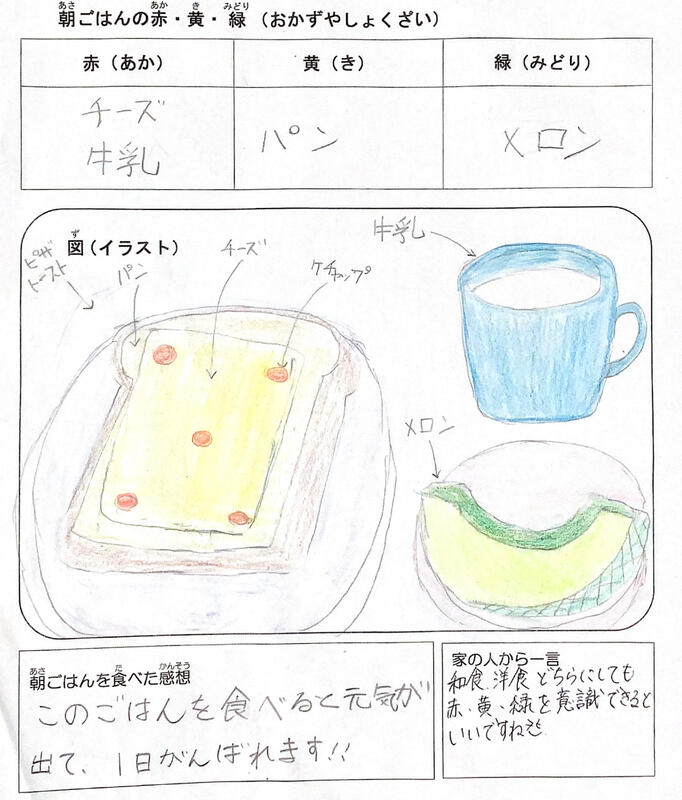 朝ごはんの赤・黄・緑（おかずやしょくざい）
赤（あか）
黄（き）
緑（みどり）
チーズ
牛乳
パン
メロン
図（イラスト）
ピザ
トースト
パン
チーズ
ケチャップ
牛乳
メロン
朝ごはんを食べた感想
このごはんを食べると元気が
出て、1日がんばれます!!
家の人から一言
和食、洋食どちらにしても
赤、黄、緑を意識できると
いいですね